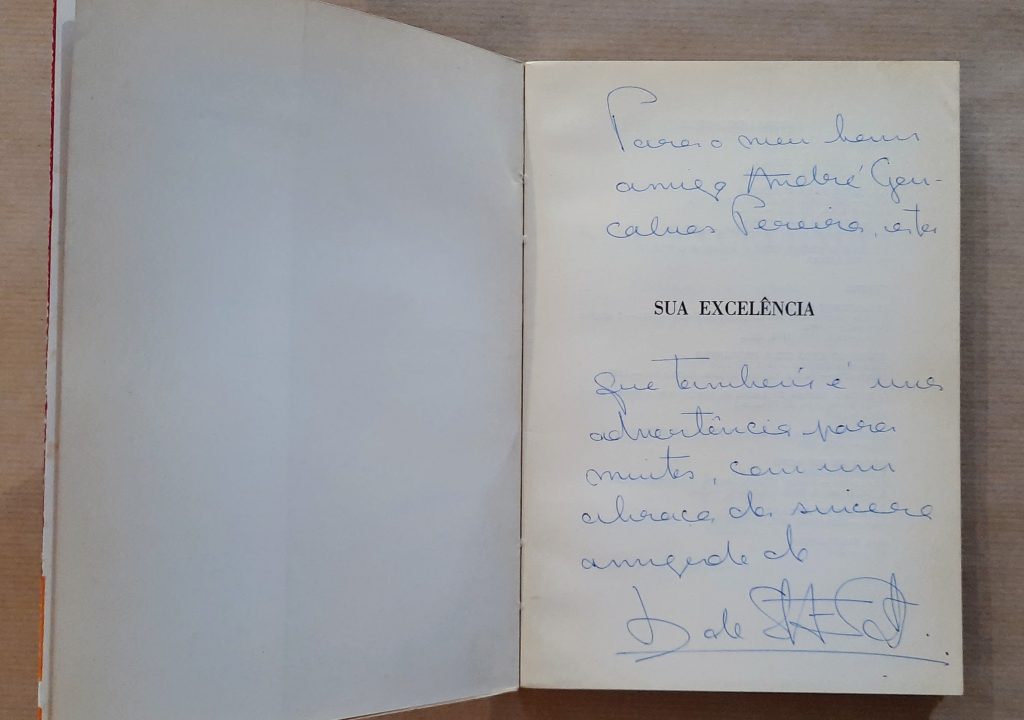 Para o meu bom
amigo André Gon-
calves Pereira, esta
SUA EXCELÊNCIA
que também é uma
advertência para
muitos, com um
abraço da sincera
amizade do